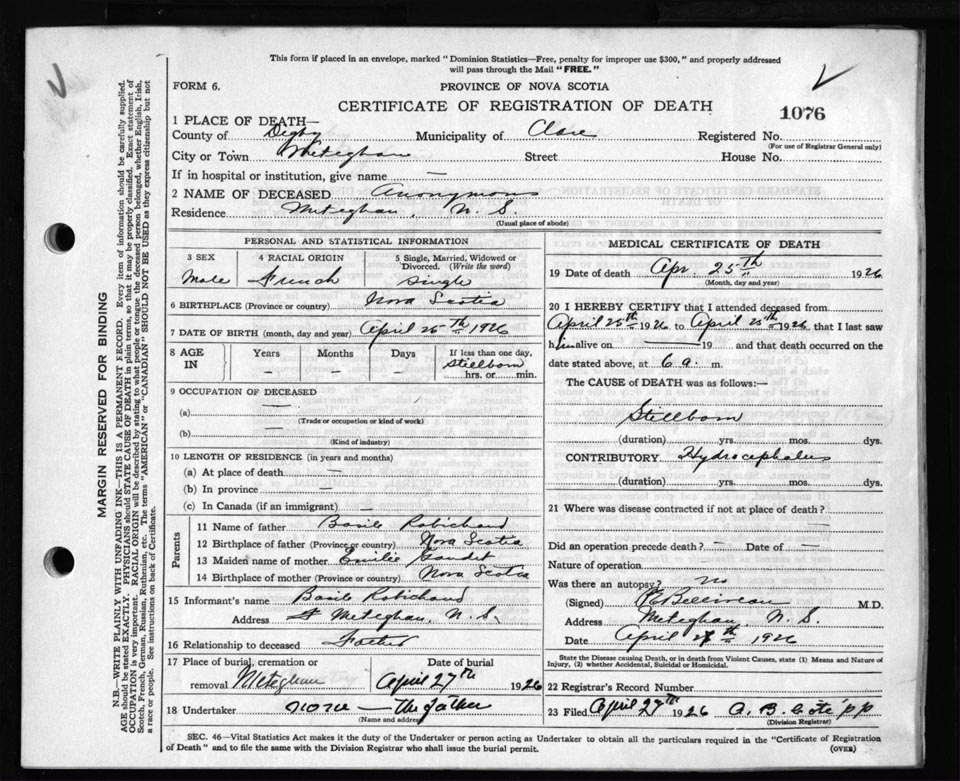 This form if placed in an envelope, marked "Dominion Statistics—Free, penalty for improper use $300," and properly addressed
will pass through the Mail "FREE."
FORM 6.
PROVINCE OF NOVA SCOTIA
CERTIFICATE OF REGISTRATION OF DEATH
1076
1 PLACE OF DEATH—
County of Digby Municipality of Clare Registered No.
(For use of Registrar General only)
City or Town Meteghan Street House No.
If in hospital or institution, give name —
2 NAME OF DECEASED Anonymous
Residence Meteghan, N. S.
(Usual place of abode)
PERSONAL AND STATISTICAL INFORMATION
3 SEX 4 RACIAL ORIGIN 5 Single, Married, Widowed or
Divorced. (Write the word)
Male French Single
6 BIRTHPLACE (Province or country) Nova Scotia
7 DATE OF BIRTH (month, day and year) April 25th 1926
8 AGE IN Years Months Days If less than one day,
— — — Stillborn
hrs. or min.
9 OCCUPATION OF DECEASED
(a) —
(Trade or occupation or kind of work)
(b) —
(Kind of industry)
10 LENGTH OF RESIDENCE (in years and months)
(a) At place of death —
(b) In province —
(c) In Canada (if an immigrant) —
Parents
11 Name of father Basile Robichaud
12 Birthplace of father (Province or country) Nova Scotia
13 Maiden name of mother Emilie Gaudet
14 Birthplace of mother (Province or country) Nova Scotia
15 Informant's name Basile Robichaud
Address Meteghan, N. S.
16 Relationship to deceased Father
17 Place of burial, cremation or Date of burial
removal Meteghan April 27th 1926
18 Undertaker none — the father
(Name and address)
MEDICAL CERTIFICATE OF DEATH
19 Date of death Apr. 25th 1926
(Month, day and year)
20 I HEREBY CERTIFY that I attended deceased from
April 25th 1926 to April 25th 1926 that I last saw
him alive on — 19 and that death occurred on the
date stated above, at 6 a. m.
The CAUSE of DEATH was as follows:—
Stillborn
(duration) yrs. mos. dys.
CONTRIBUTORY Hydrocephalus
(duration) yrs. mos. dys.
21 Where was disease contracted if not at place of death?
—
Did an operation precede death? — Date of —
Nature of operation
Was there an autopsy? no
(Signed) Belliveau M.D.
Address Meteghan, N. S.
Date April th 1926
State the Disease causing Death, or in death from Violent Causes, state (1) Means and Nature of
Injury, (2) whether Accidental, Suicidal or Homicidal.
22 Registrar's Record Number
23 Filed April 27th 1926 A. B. Cote pp
(Division Registrar)
SEC. 46—Vital Statistics Act makes it the duty of the Undertaker or person acting as Undertaker to obtain all the particulars required in the "Certificate of Registration
of Death" and to file the same with the Division Registrar who shall issue the burial permit.
(OVER)
MARGIN RESERVED FOR BINDING
N.B.—WRITE PLAINLY WITH UNFADING INK—THIS IS A PERMANENT RECORD. Every item of information should be carefully supplied.
AGE should be stated EXACTLY. PHYSICIANS should STATE CAUSE OF DEATH in plain terms, so that it may be properly classified. Exact statement of
OCCUPATION is very important. RACIAL ORIGIN will be described by stating to what people or tongue the deceased person belonged, whether English, Irish,
Scotch, French, German, Russian, Ruthenian, etc. The terms "AMERICAN" or "CANADIAN" SHOULD NOT BE USED as they express citizenship but not
a race or people. See instructions on back of Certificate.